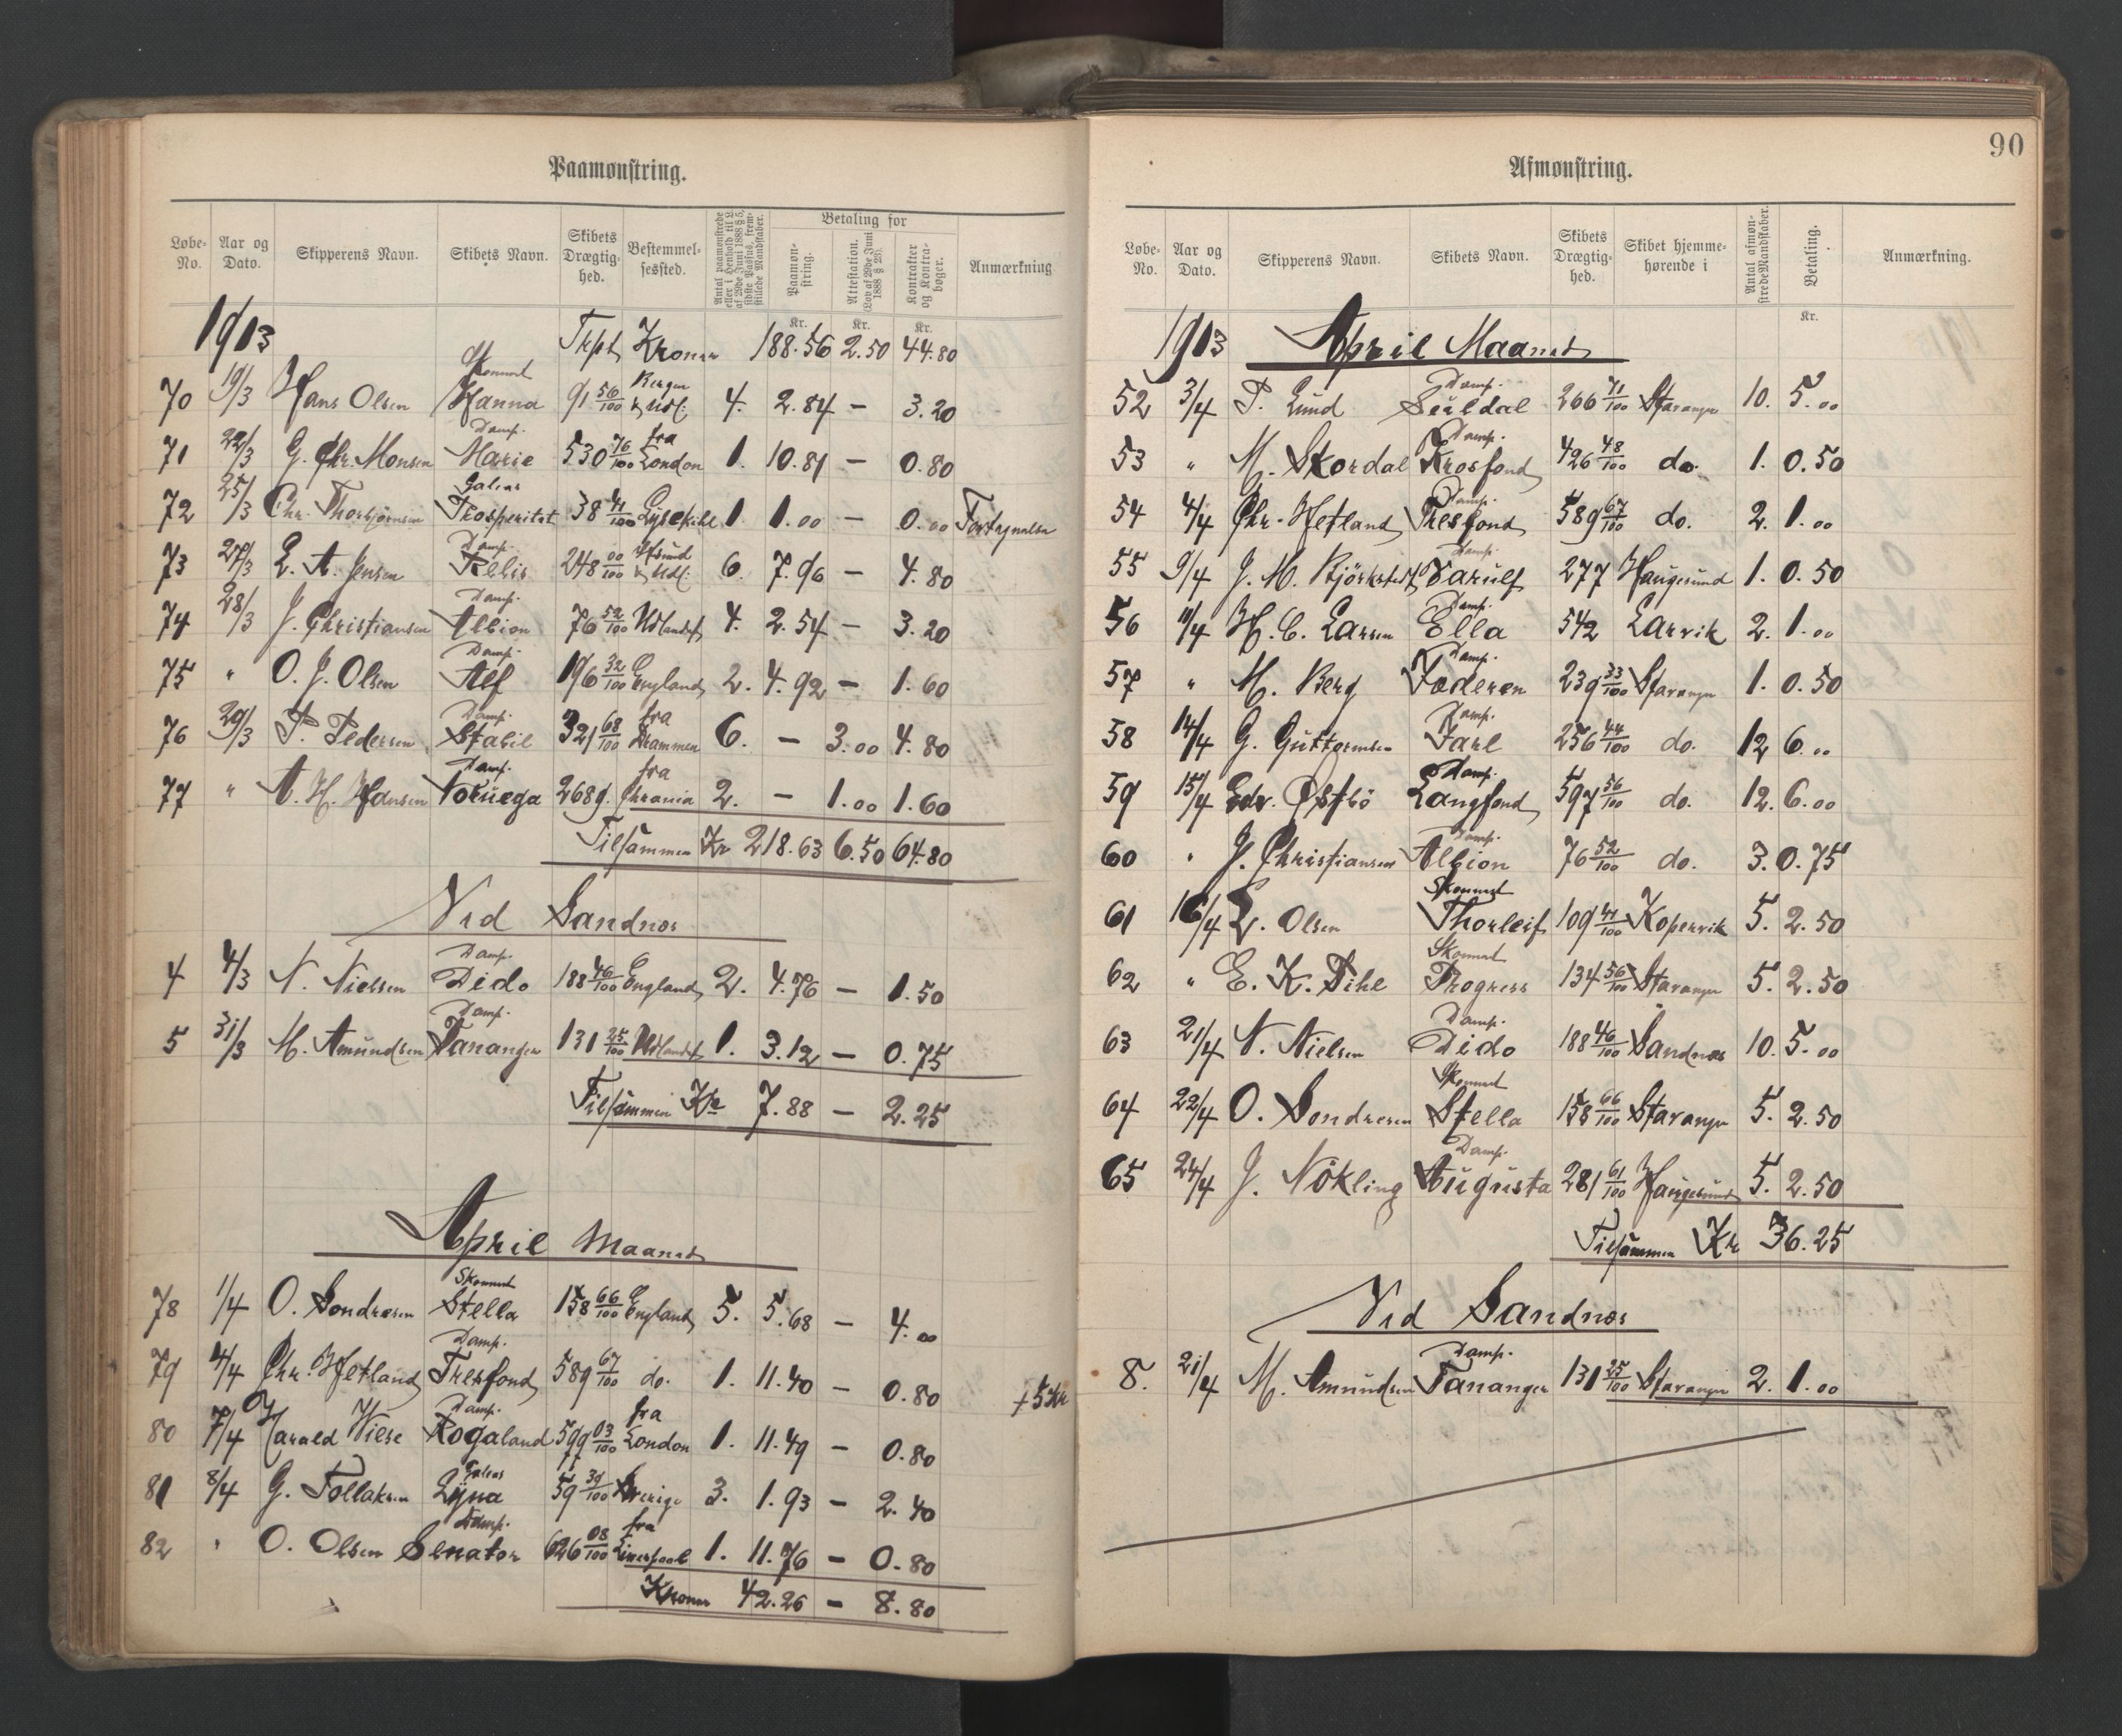 Paamønstring.
Løbe-No. Aar og Dato. Skipperens Navn. Skibets Navn. Skibets Drægtighed. Bestemmelsessted. Antal paamønstrede eller i Henhold til L. af 29de Juni 1888 § 5, sidste Passus, fremstillede Mandskaber. Betaling for Paamønstring. Attestation. (Lov af 29de Juni 1888 § 25). Kontrakter og Kontrabøger. Anmærkning
Kr. Kr. Kr.
1903 Trpt Kroner 188.56 2.50 44.80
70 19/3 Hans Olsen Skonnert Hanna 91 56/100 Bergen & Udl: 4. 2.84 — 3.20
71 22/3 G. Chr. Monsen Damp. Marie 530 76/100 fra London 1. 10.81 — 0.80
72 25/3 Chr. Thorbjørnsen Galeas Prosperitet 38 41/100 Lysekihl 1 1.00 — 0.00 Fortegnelse
73 27/3 L. A. Jensen Damp. Rebis 248 00/100 & Udl: 6. 7.96 — 4.80
74 28/3 J. Christiansen Damp. Albion 76 52/100 Udlandet 4. 2.54 — 3.20
75 " O. J. Olsen Damp. Alf 196 32/100 England 2. 4.92 — 1.60
76 29/3 P. Pedersen Damp. Stabil 321 68/100 fra Drammen 6. — 3.00 4.80
77 " A. H. Hansen Damp. Noruega 2689. fra Chrania 2. — 1.00 1.60
Tilsammen Kr 218.63 6.50 64.80
Ved Sandnæs
4 4/3 N. Nielsen Damp. Dido 188 46/100 England 2. 4.76 — 1.50
5 31/3 M. Amundsen Damp. Tananger 131 25/100 Udlandet 1. 3.12 — 0.75
Tilsammen Kr 7.88 — 2.25
April Maaned
78 1/4 O. Sondresen Skonnert Stella 158 66/100 England 5. 5.68 — 4.00
79 4/4 Chr. Hetland Damp. Tresfond 589 67/100 do. 1. 11.40 — 0.80 + 5 Kr
80 7/4 Harald Wiese Damp. Rogaland 599 03/100 fra London 1. 11.49 — 0.80
81 8/4 G. Tollaksen Galeas Lyna 59 39/100 Sverige 3. 1.93 — 2.40
82 " O. Olsen Damp. Senator 626 08/100 fra Liverpool 1. 11.76 — 0.80
Kroner 42.26 — 8.80
90
Afmønstring.
Løbe-No. Aar og Dato. Skipperens Navn. Skibets Navn. Skibets Drægtighed. Skibet hjemmehørende i Antal afmønstrede Mandskaber. Betaling. Anmærkning.
Kr.
1903 April Maaned
52 3/4 P. Lund Damp. Suldal 266 71/100 Stavanger 10. 5.00
53 " M. Skordal Damp. Krosfond 426 48/100 do. 1. 0.50
54 4/4 Chr. Hetland Damp. Tresfond 589 67/100 do. 2. 1.00
55 9/4 J. M. Bjørkstedt Damp. Varulf 277 Haugesund 1. 0.50
56 11/4 H. C. Larsen Damp. Ella 542 Larvik 2. 1.00
57 " M. Berg Damp. Jæderen 239 33/100 Stavanger 1. 0.50
58 14/4 G. Guttormsen Damp. Jarl 256 44/100 do. 12 6.00
59 15/4 Edv. Østbö Damp. Langfond 597 56/100 do. 12. 6.00
60 " J. Christiansen Damp. Albion 76 52/100 do. 3. 0.75
61 16/4 L. Olsen Skonnert Thorleif 109 41/100 Kopervik 5. 2.50
62 " E. K. Pihl Skonnert Progress 134 56/100 Stavanger 5. 2.50
63 21/4 N. Nielsen Damp. Dido 188 46/100 Sandnæs 10. 5.00
64 22/4 O. Sondresen Skonnert Stella 158 66/100 Stavanger 5. 2.50
65 24/4 J. Nökling Damp. Augusta 281 61/100 Haugesund 5. 2.50
Tilsammen Kr 36.25
Ved Sandnæs
8. 21/4 M. Amundsen Damp. Tananger 131 25/100 Stavanger 2. 1.00